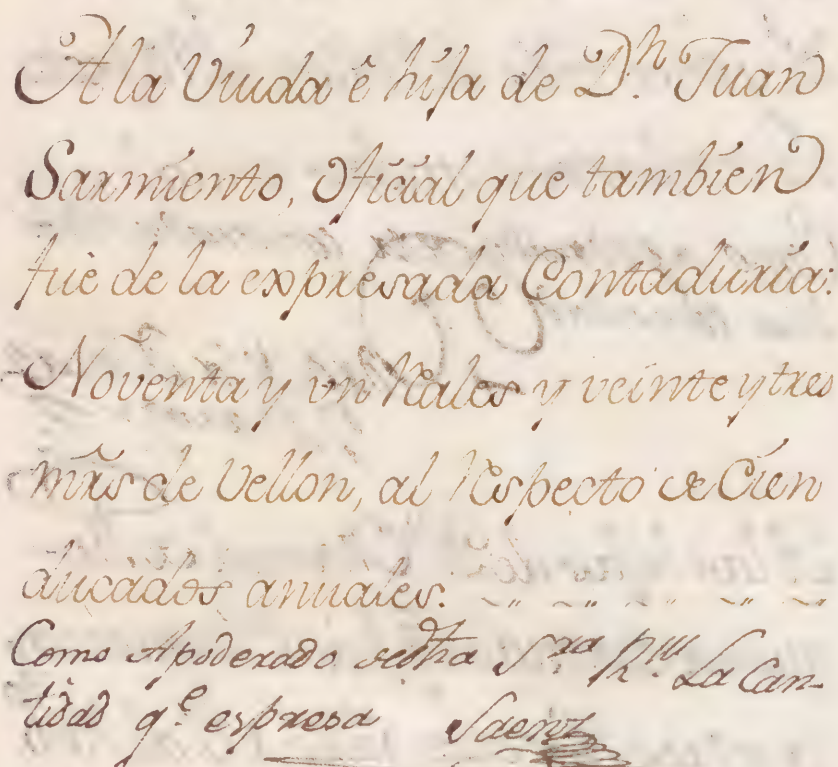 A la Viuda é hija de D.ⁿ Juan
Sarmiento, Oficial que tambien
fué de la expresada Contaduría:
Noventa y un Reales y veinte y tres
mrs̃ de Vellon, al Respecto de Cien
ducados anuales. ~ " ~ " ~ " ~ " ~
Como Apoderado de dha S.ʳᵃ R.ᵛⁱ La Can-
tidad q.ᵉ espresa Saenz